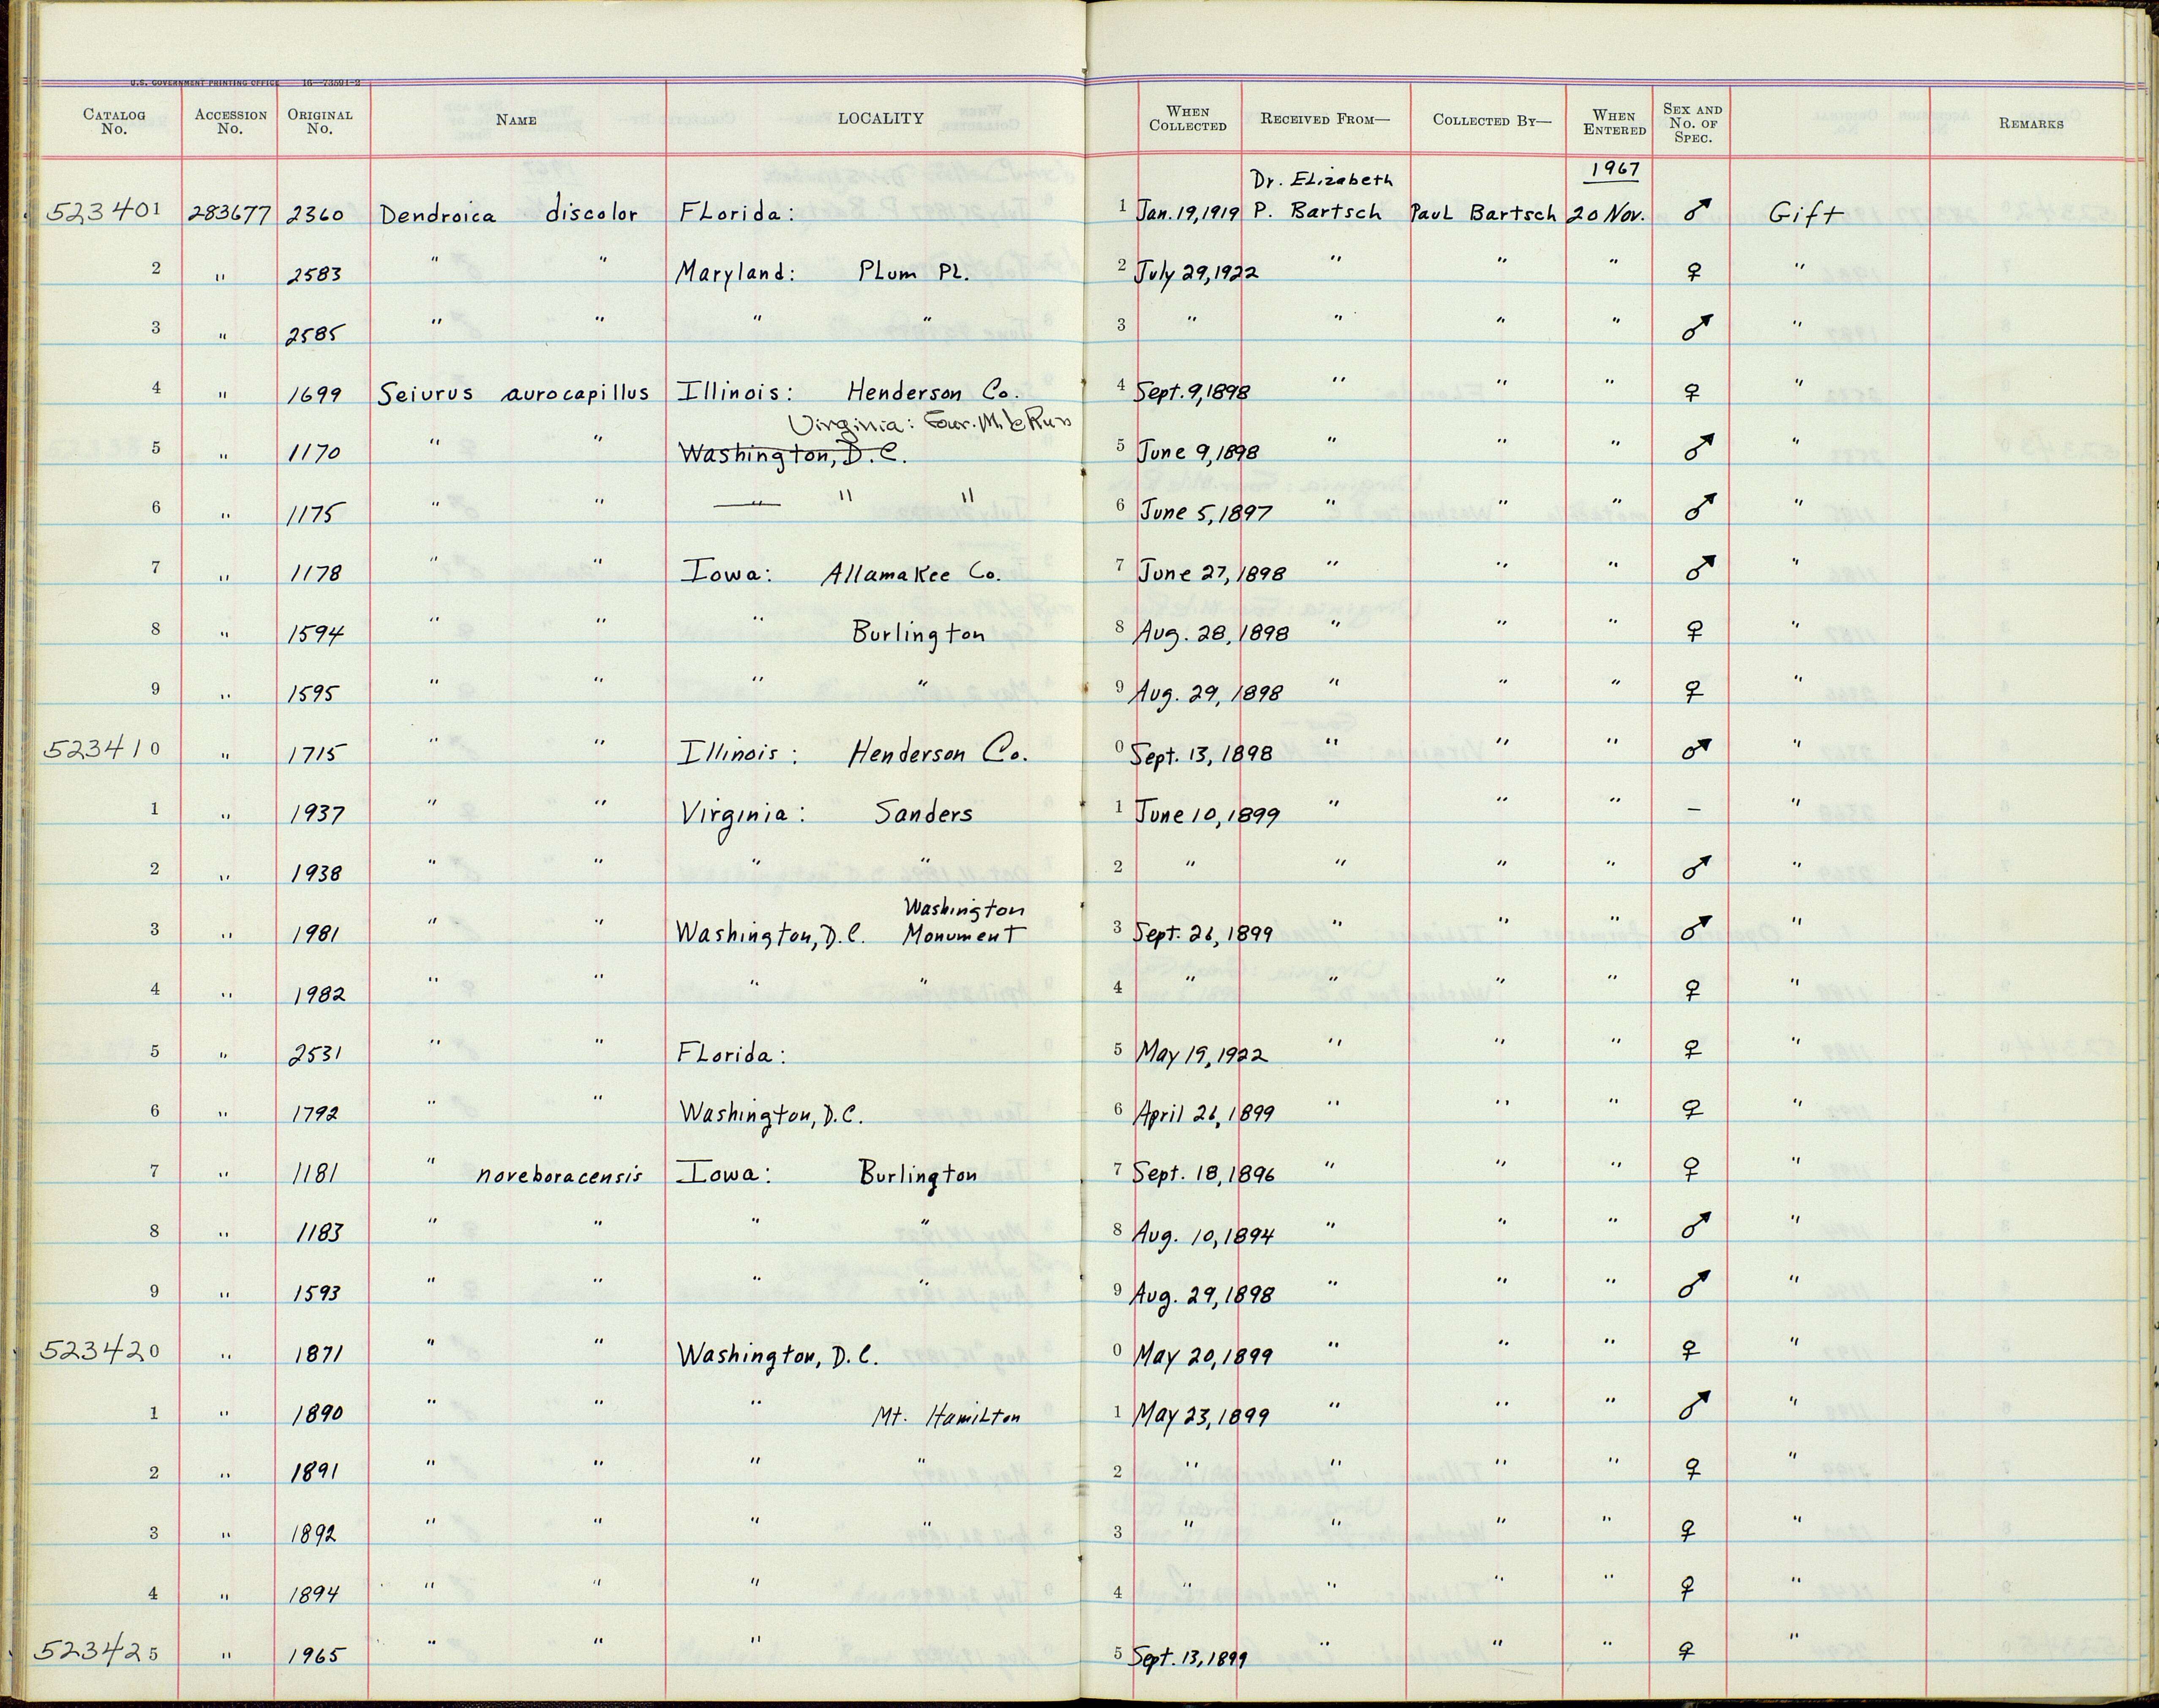 U.S. GOVERNMENT PRINTING OFFICE 16—73591-2
CATALOG No. ACCESSION No. ORIGINAL No. NAME LOCALITY WHEN COLLECTED RECEIVED FROM— COLLECTED BY— WHEN ENTERED SEX AND No. OF SPEC. REMARKS
Dr. Elizabeth 1967
523401 283677 2360 Dendroica discolor Florida: 1 Jan. 19, 1919 P. Bartsch Paul Bartsch 20 Nov. ♂ Gift
2 " 2583 " " Maryland: Plum Pt. 2 July 29, 1922 " " " ♀ "
3 " 2585 " " " " 3 " " " " ♂ "
4 " 1699 Seiurus aurocapillus Illinois: Henderson Co. 4 Sept. 9, 1898 " " " ♀ "
Virginia: Four Mile Run
5 " 1170 " " Washington, D.C. 5 June 9, 1898 " " " ♂ "
6 " 1175 " " " " " 6 June 5, 1897 " " " ♂ "
7 " 1178 " " Iowa: Allamakee Co. 7 June 27, 1898 " " " ♂ "
8 " 1594 " " " Burlington 8 Aug. 28, 1898 " " " ♀ "
9 " 1595 " " " " 9 Aug. 29, 1898 " " " ♀ "
523410 " 1715 " " Illinois: Henderson Co. 0 Sept. 13, 1898 " " " ♂ "
1 " 1937 " " Virginia: Sanders 1 June 10, 1899 " " " – "
2 " 1938 " " " " 2 " " " " ♂ "
Washington
3 " 1981 " " Washington, D.C. Monument 3 Sept. 26, 1899 " " " ♂ "
4 " 1982 " " " " 4 " " " " ♀ "
5 " 2531 " " Florida: 5 May 19, 1922 " " " ♀ "
6 " 1792 " " Washington, D.C. 6 April 26, 1899 " " " ♀ "
7 " 1181 " noveboracensis Iowa: Burlington 7 Sept. 18, 1896 " " " ♀ "
8 " 1183 " " " " 8 Aug. 10, 1894 " " " ♂ "
9 " 1593 " " " " 9 Aug. 29, 1898 " " " ♂ "
523420 " 1871 " " Washington, D.C. 0 May 20, 1899 " " " ♀ "
1 " 1890 " " " Mt. Hamilton 1 May 23, 1899 " " " ♂ "
2 " 1891 " " " " 2 " " " " ♀ "
3 " 1892 " " " " 3 " " " " ♀ "
4 " 1894 " " " 4 " " " " ♀ "
523425 " 1965 " " " 5 Sept. 13, 1899 " " " ♀ "